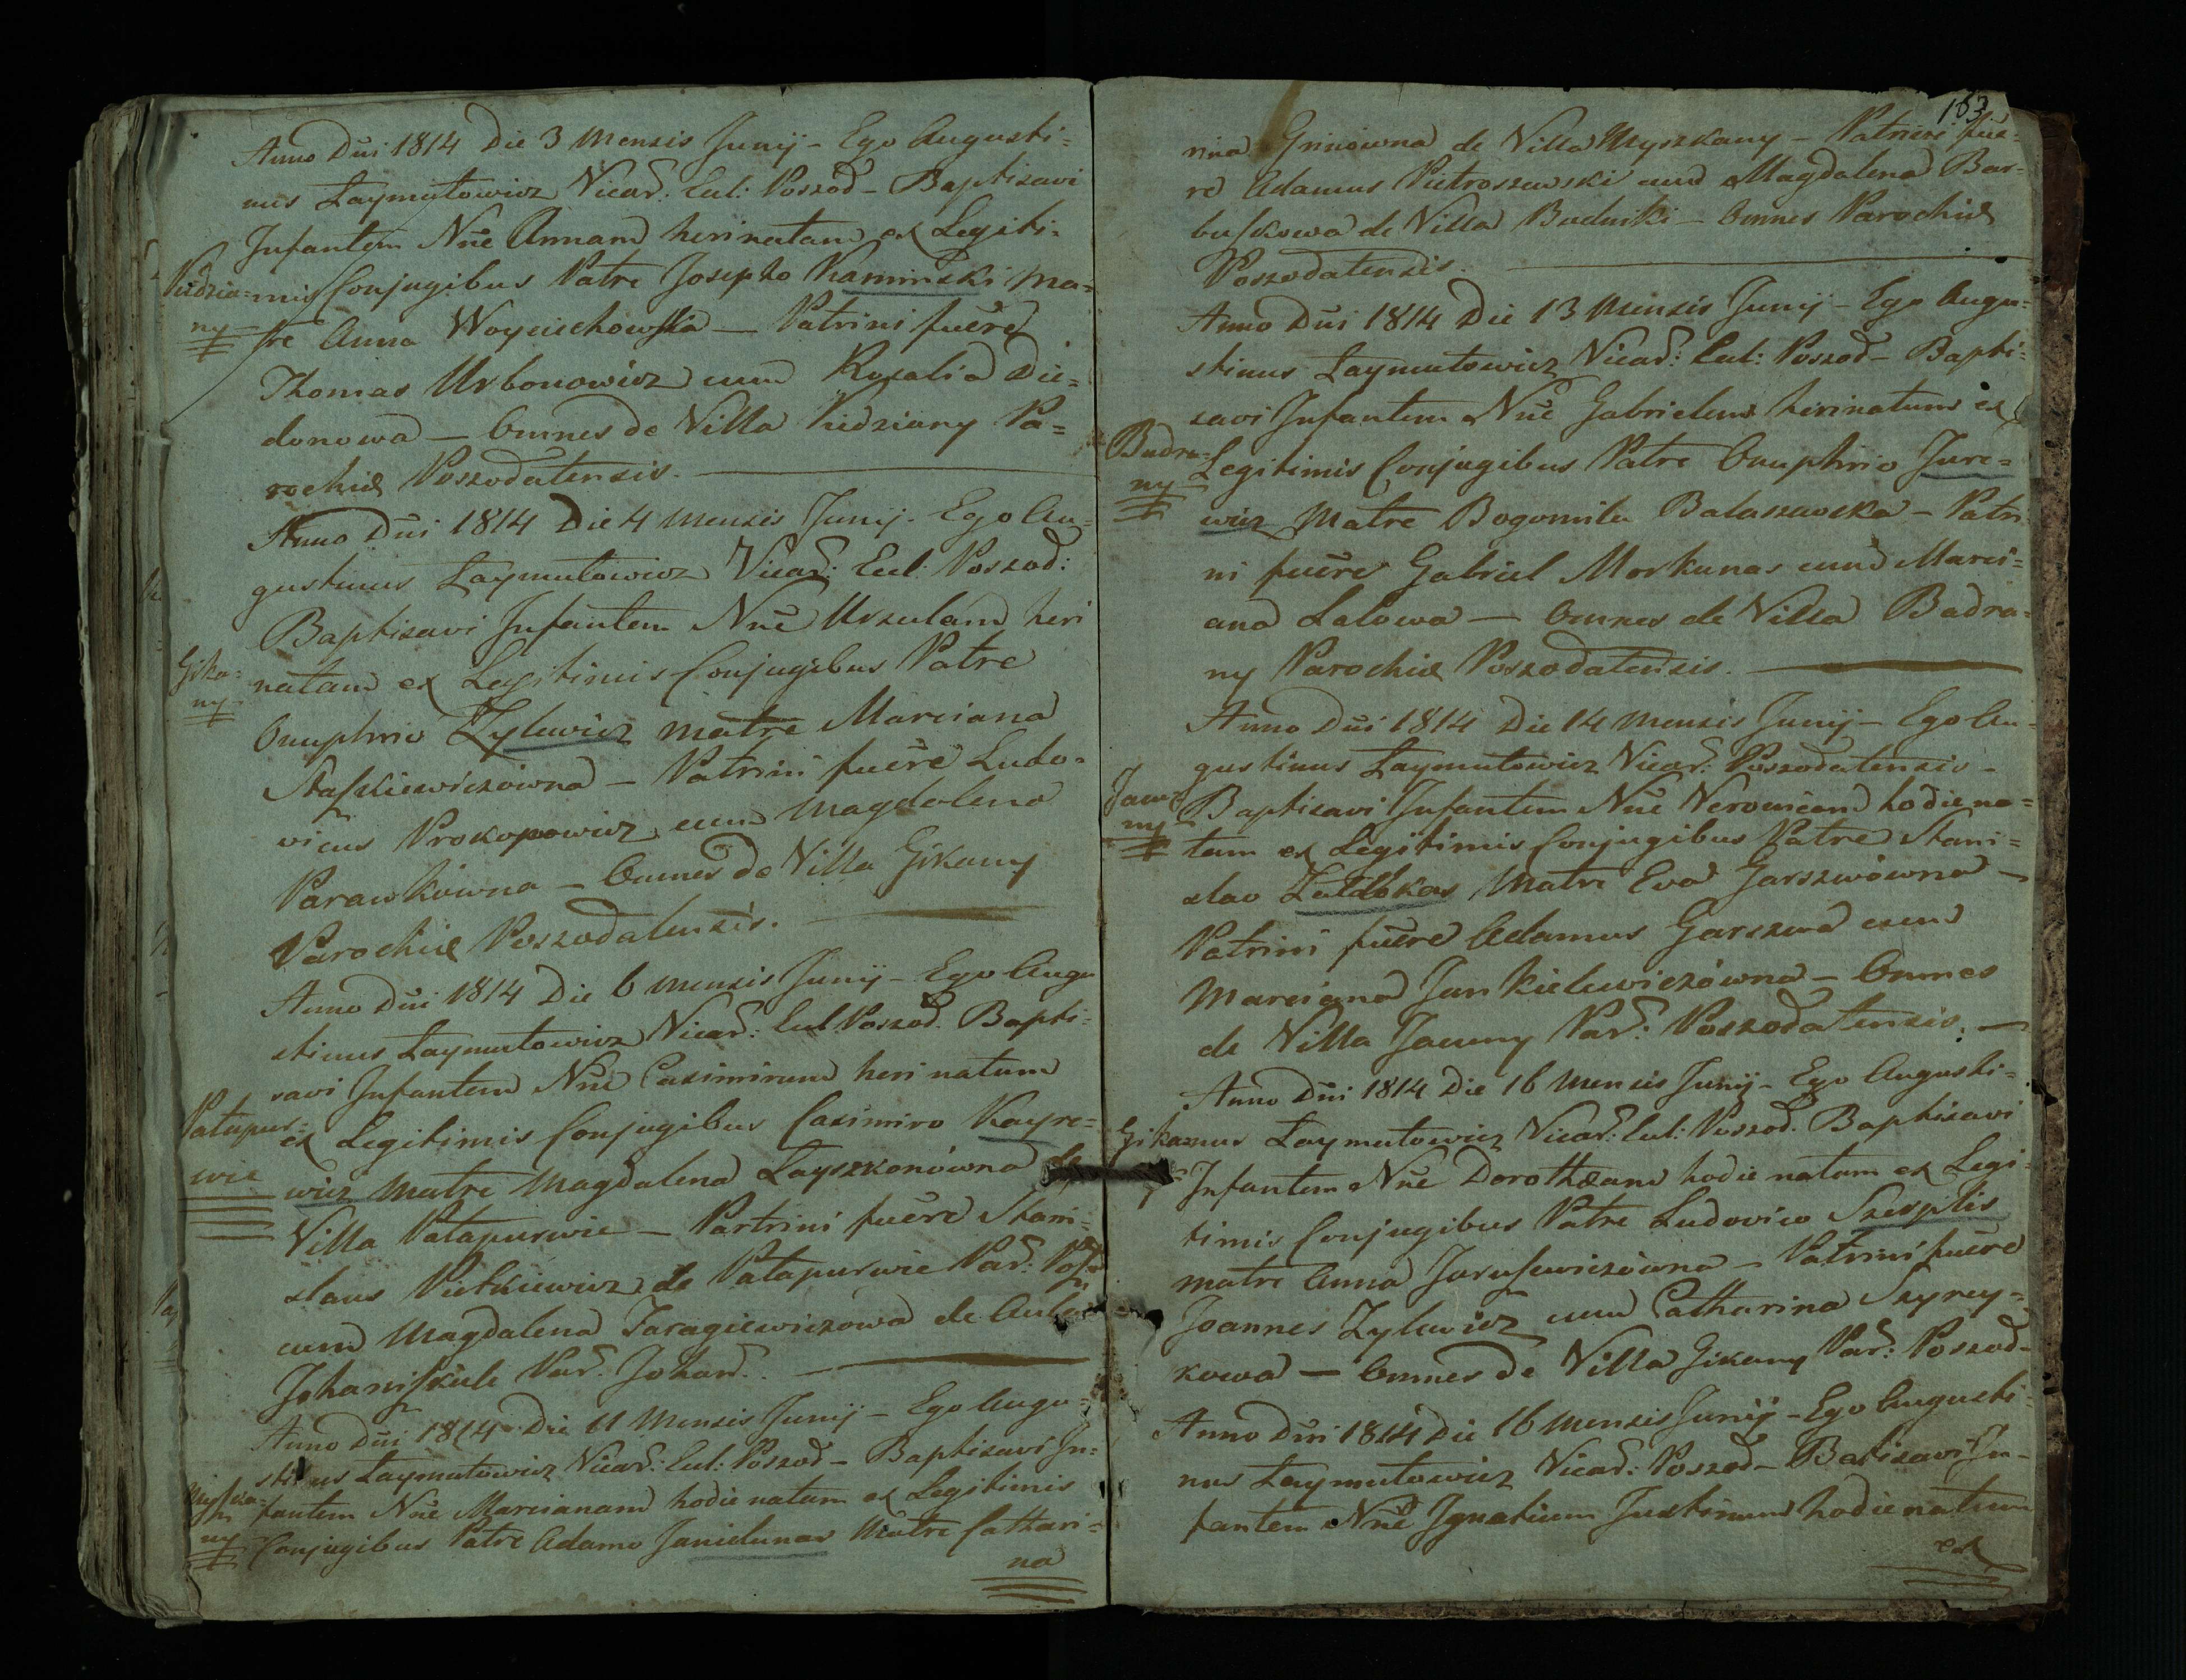 Anno Dñi 1814 Die 3 Mensis Junij – Ego Augusti=
nus Laymutowicz Vicar: Eccl: Poszod – Baptisavi
Infantem Nñe Annam heri natam ex Legiti=
mis Conjugibus Patre Josepho Kaminski Ma=
ny
tre Anna Woyciechowska – Patrini fuere
Thomas Urbonowicz cum Rozalia Die=
donowa – Omnes de Villa Kiedziany Pa=
rochiæ Poszodatensis.
Anno Dñi 1814 Die 4 Mensis Junij. Ego Au=
gustinus Laymutowicz Vicar: Eccl: Poszod:
Baptisavi Infantem Nñe Urzulam heri
Gika=
ny
natam ex Legitimis Conjugibus Patre
Onuphrio Zylewicz Matre Marciana
Staskiewiczowna – Patrini fuere Ludo=
vicus Prokopowicz cum Magdalena
Parawkowna – Omnes de Villa Gikany
Parochiæ Poszodatensis.
Anno Dñi 1814 Die 6 Mensis Junij – Ego Augu
stinus Laymutowicz Vicar: Eccl. Poszod. Bapti=
savi Infantem Nñe Casimirum heri natum
Patapur=
wie
ex Legitimis Conjugibus Casimiro Kayre=
wicz Matre Magdalena Layszkonowna de
Villa Patapurwie – Partrini fuere Stani=
slaus Pietkiewicz de Patapurwie Par:
cum Magdalena Taragiewiczowa de
Johaniszkiele Par. Johan.
Anno Dñi 1814 Die 11 Mensis Junij – Ego Augu=
stinus Laymutowicz Vicar: Eccl: Poszod – Baptisavi In=
Myszka=
ny
fantem Nñe Marcianam hodie natam ex Legitimis
Conjugibus Patre Adamo Janielunas Matre Cathari=
na
163
rina Griniowna de Villa Myszkany – Patrini fue=
re Adamus Pietroszewski cum Magdalena Bar=
buskowa de Villa Budniki – Omnes Parochiæ
Poszodatensis.
Anno Dñi 1814 Die 13 Mensis Junij – Ego Augu=
stinus Laymutowicz Vicar: Eccl: Poszod – Bapti=
savi Infantem Nñe Gabrielem heri natum ex
Badra=
ny
Legitimis Conjugibus Patre Onuphrio Jure=
wicz Matre Bogomila Balaszewska – Patri
ni fuere Gabriel Morkunas cum Marci=
ana Lalowa – Omnes de Villa Badra=
ny Parochiæ Poszodatensis.
Anno Dñi 1814 Die 14 Mensis Junij – Ego Au=
gustinus Laymutowicz Vicar: Poszodatensis –
Jauny
Baptisavi Infantem Nñe Veronicam hodie na=
tam ex Legitimis Conjugibus Patre Stani=
slao Matre Eva Garszwowna –
Patrini fuere Adamus Garszwa cum
Marciana Jankielewiczówna – Omnes
de Villa Jauny Par: Poszodatensis. –
Anno Dñi 1814 Die 16 Mensis Junij – Ego Augusti=
Gikany
nus Laymutowicz Vicar: Eccl: Poszod. Baptisavi
Infantem Nñe Dorothæam hodie natam ex Legi=
timis Conjugibus Patre Ludovico Szerptis
Matre Anna Jarusewiczówna – Patrini fuere
Joannes Zylewicz cum Catharina Szyrey=
kowa – Omnes de Villa Gikany Par: Poszod–
Anno Dñi 1814 Die 16 Mensis Junij – Ego Augusti=
nus Laymutowicz Vicar: Poszod – Batisavi In=
fantem Nñe Ignatium Justinum hodie natum
ex